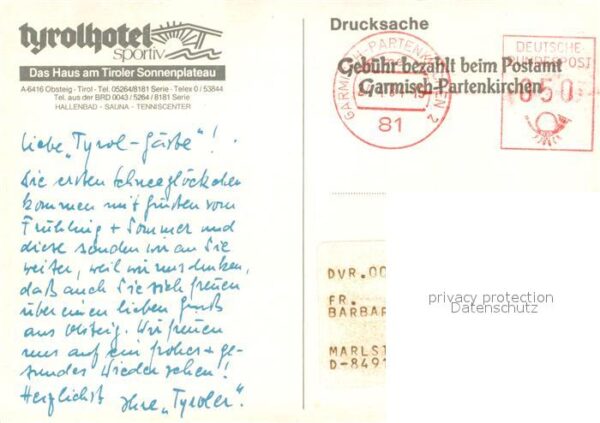 tyrolhotel
sportiv
Das Haus am Tiroler Sonnenplateau
A-6416 Obsteig · Tirol · Tel. 05264/8181 Serie · Telex 0 / 53844
Tel. aus der BRD 0043 / 5264 / 8181 Serie
HALLENBAD - SAUNA - TENNISCENTER
Liebe „Tyrol-Gäste"!
Die ersten Schneeglöckchen
kommen mit Grüßen vom
Frühling + Sommer und
diese senden wir an Sie
weiter, weil wir uns denken,
daß auch Sie sich freuen
über einen lieben Gruß
aus Obsteig. Wir freuen
uns auf ein frohes + ge-
sundes Wiedersehen!
Herzlichst Ihre „Tyroler".
Drucksache
GARMISCH-PARTENKIRCHEN 2
81
Gebühr bezahlt beim Postamt
Garmisch-Partenkirchen
DEUTSCHE
BUNDESPOST
050
DVR.00
FR.
BARBAR
MARLST
D-8491
privacy protection
Datenschutz